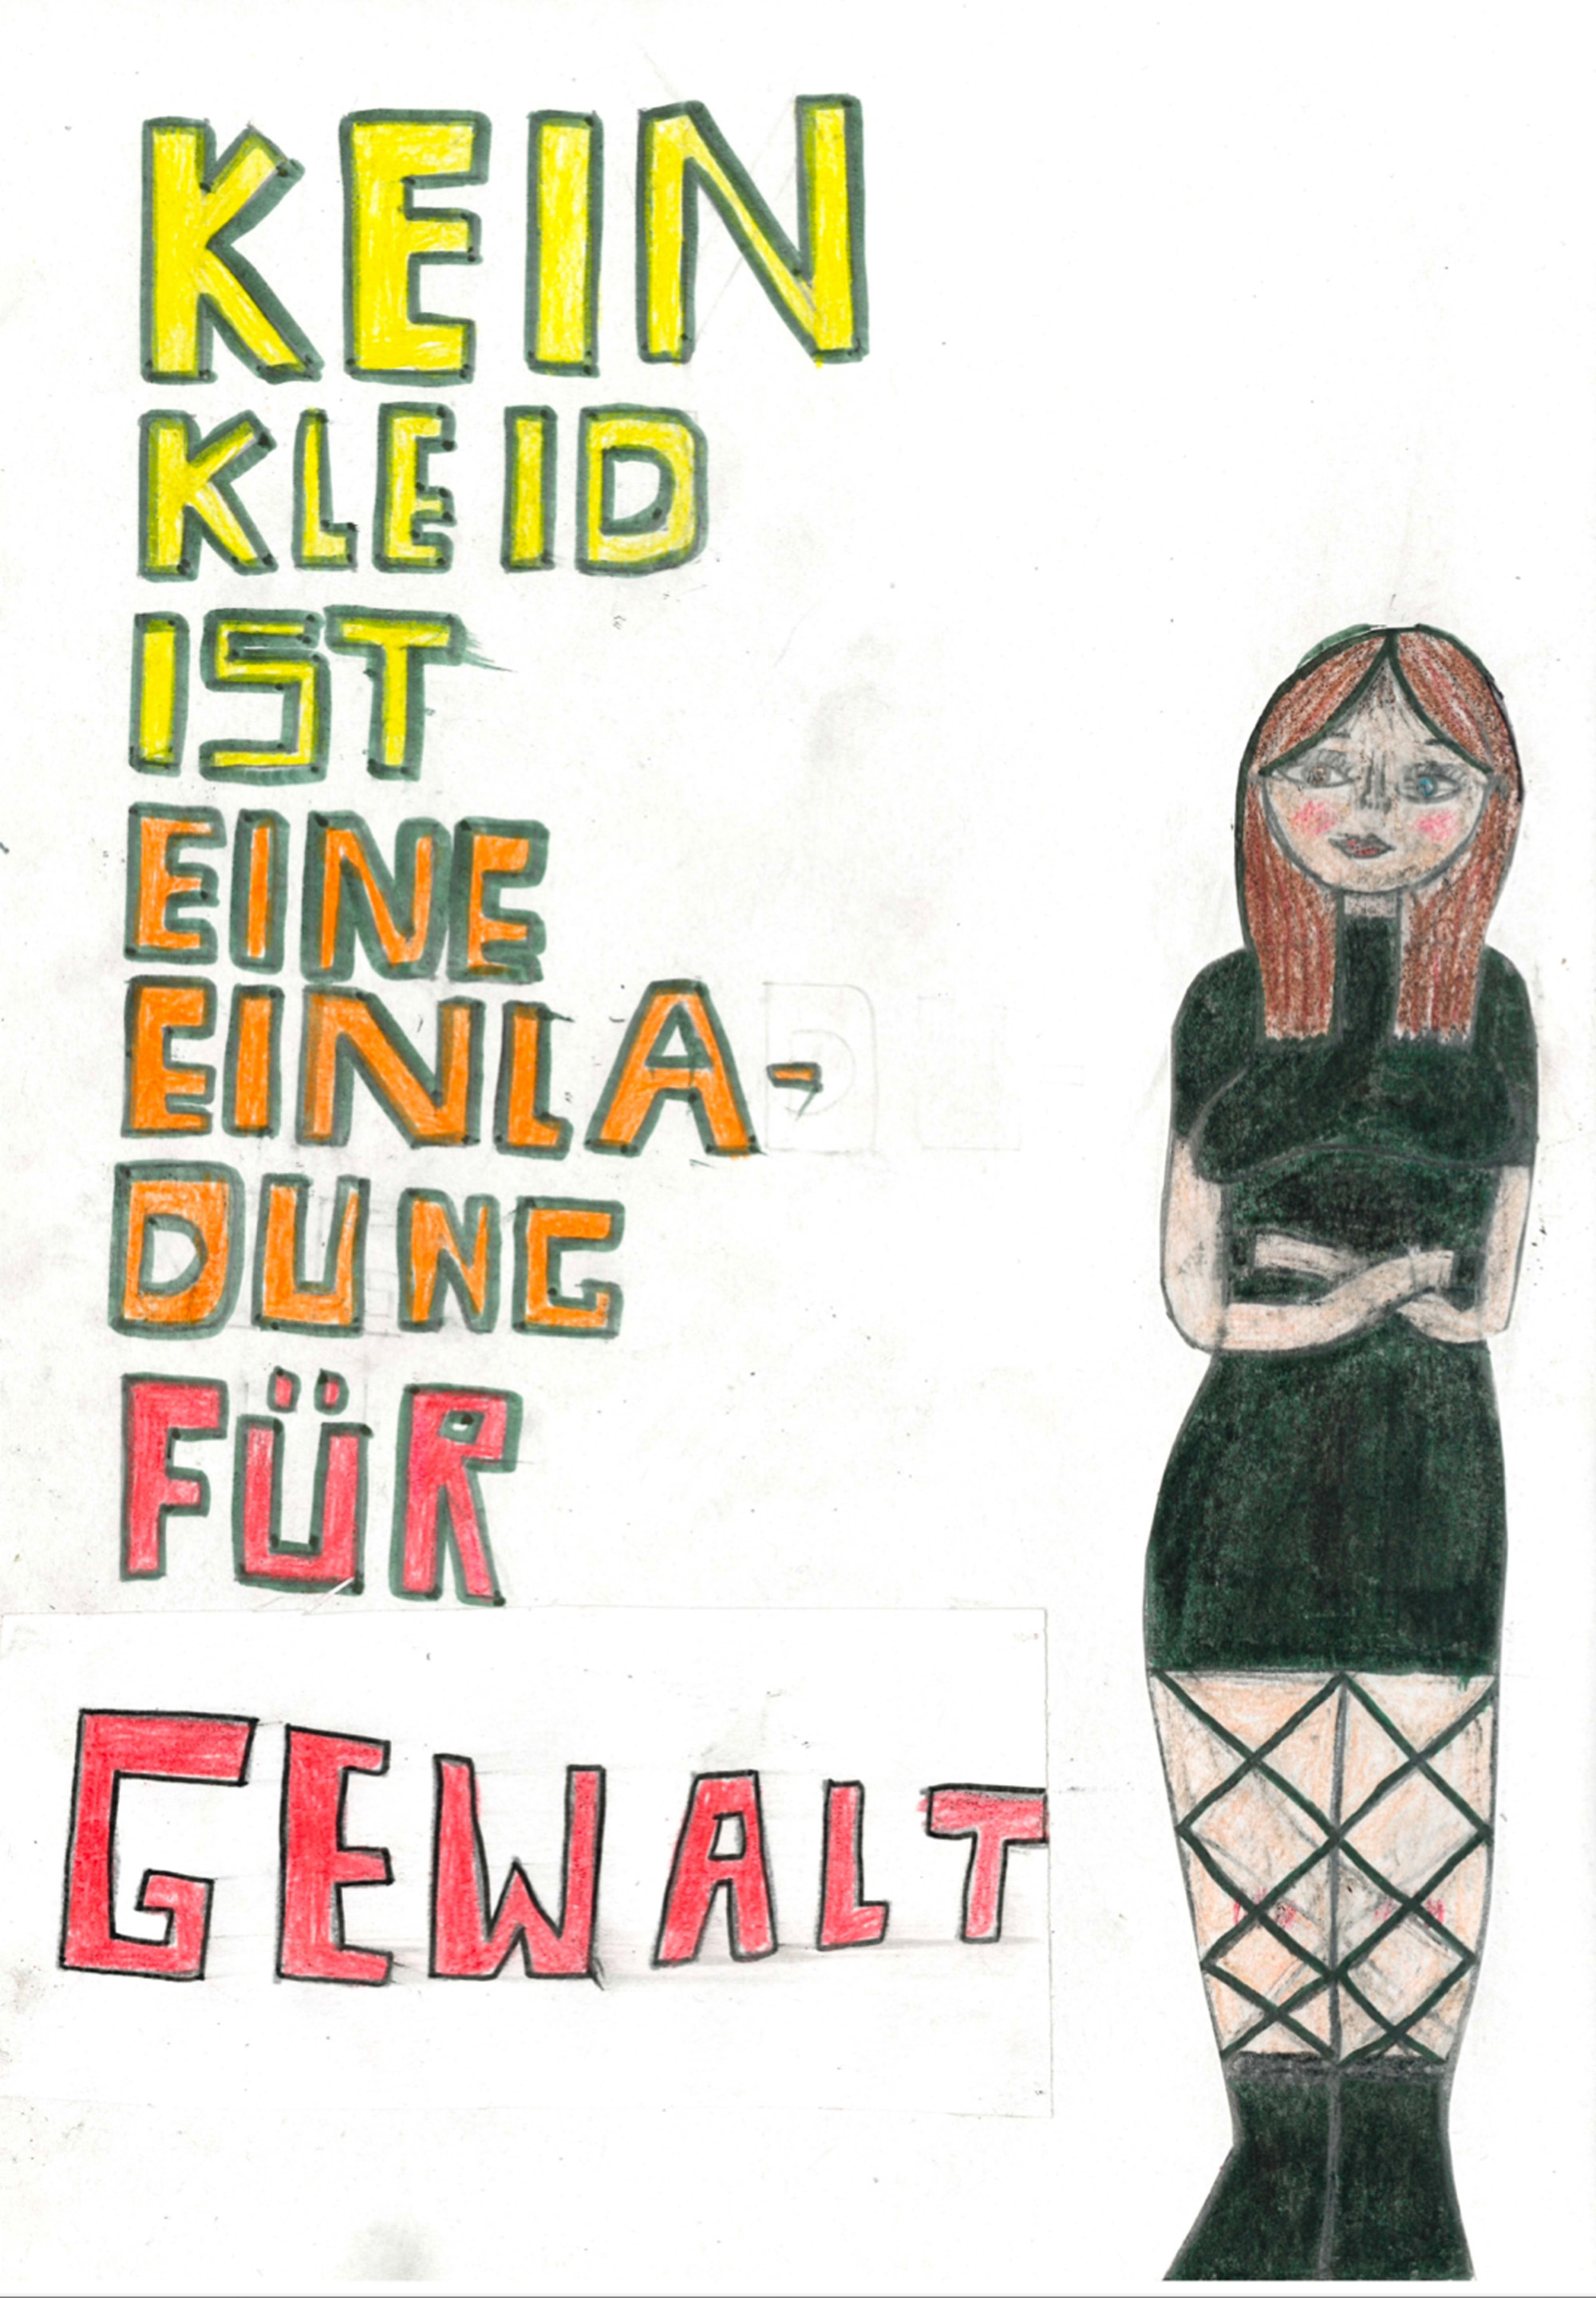 KEIN
KLEID
IST
EINE
EINLA-
DUNG
FÜR
GEWALT